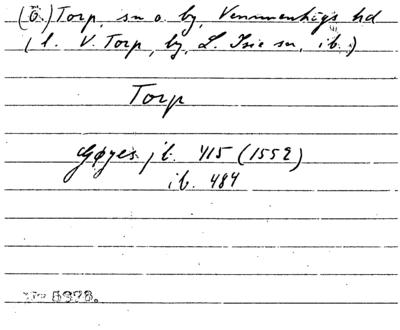 (Ö.) Torp, sn o. by, Vemmenhögs hd
(l. V. Torp, by, L. Isie sn, ib.)
Torp
Gøyes jb. 415 (1552)
ib. 484